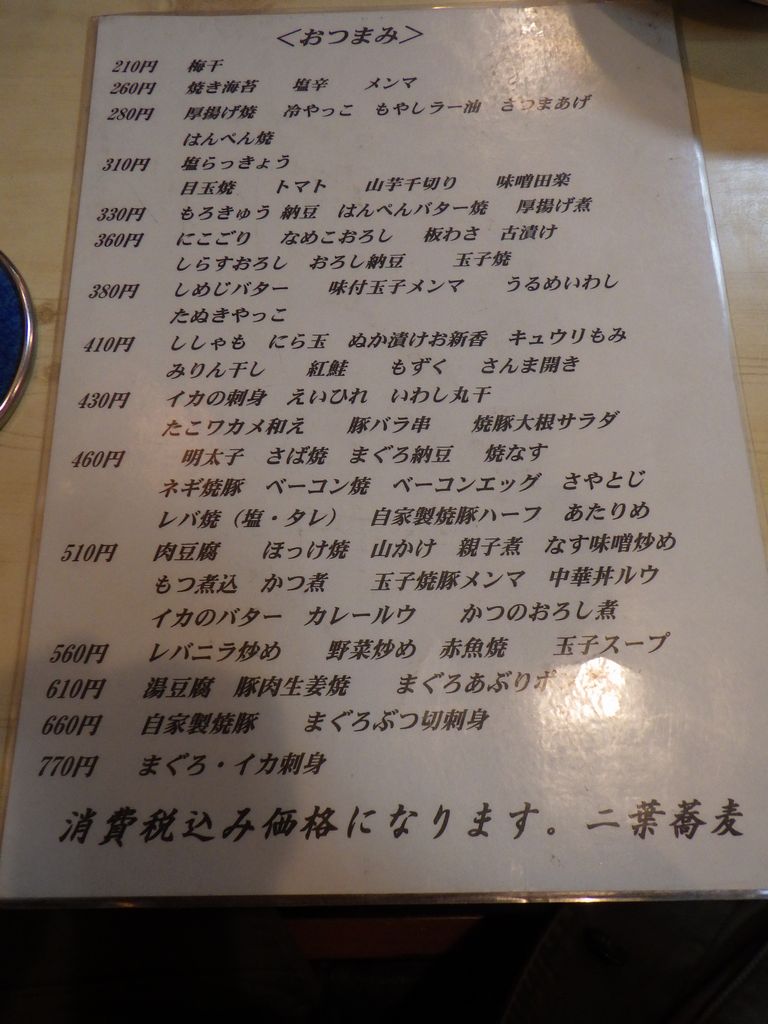 ＜おつまみ＞
210円 梅干
260円 焼き海苔 塩辛 メンマ
280円 厚揚げ焼 冷やっこ もやしラー油 さつまあげ
はんぺん焼
310円 塩らっきょう
目玉焼 トマト 山芋千切り 味噌田楽
330円 もろきゅう 納豆 はんぺんバター焼 厚揚げ煮
360円 にこごり なめこおろし 板わさ 古漬け
しらすおろし おろし納豆 玉子焼
380円 しめじバター 味付玉子メンマ うるめいわし
たぬきやっこ
410円 ししゃも にら玉 ぬか漬けお新香 キュウリもみ
みりん干し 紅鮭 もずく さんま開き
430円 イカの刺身 えいひれ いわし丸干
たこワカメ和え 豚バラ串 焼豚大根サラダ
460円 明太子 さば焼 まぐろ納豆 焼なす
ネギ焼豚 ベーコン焼 ベーコンエッグ さやとじ
レバ焼（塩・タレ） 自家製焼豚ハーフ あたりめ
510円 肉豆腐 ほっけ焼 山かけ 親子煮 なす味噌炒め
もつ煮込 かつ煮 玉子焼豚メンマ 中華丼ルウ
イカのバター カレールウ かつのおろし煮
560円 レバニラ炒め 野菜炒め 赤魚焼 玉子スープ
610円 湯豆腐 豚肉生姜焼 まぐろあぶりポ
660円 自家製焼豚 まぐろぶつ切刺身
770円 まぐろ・イカ刺身
消費税込み価格になります。二葉蕎麦